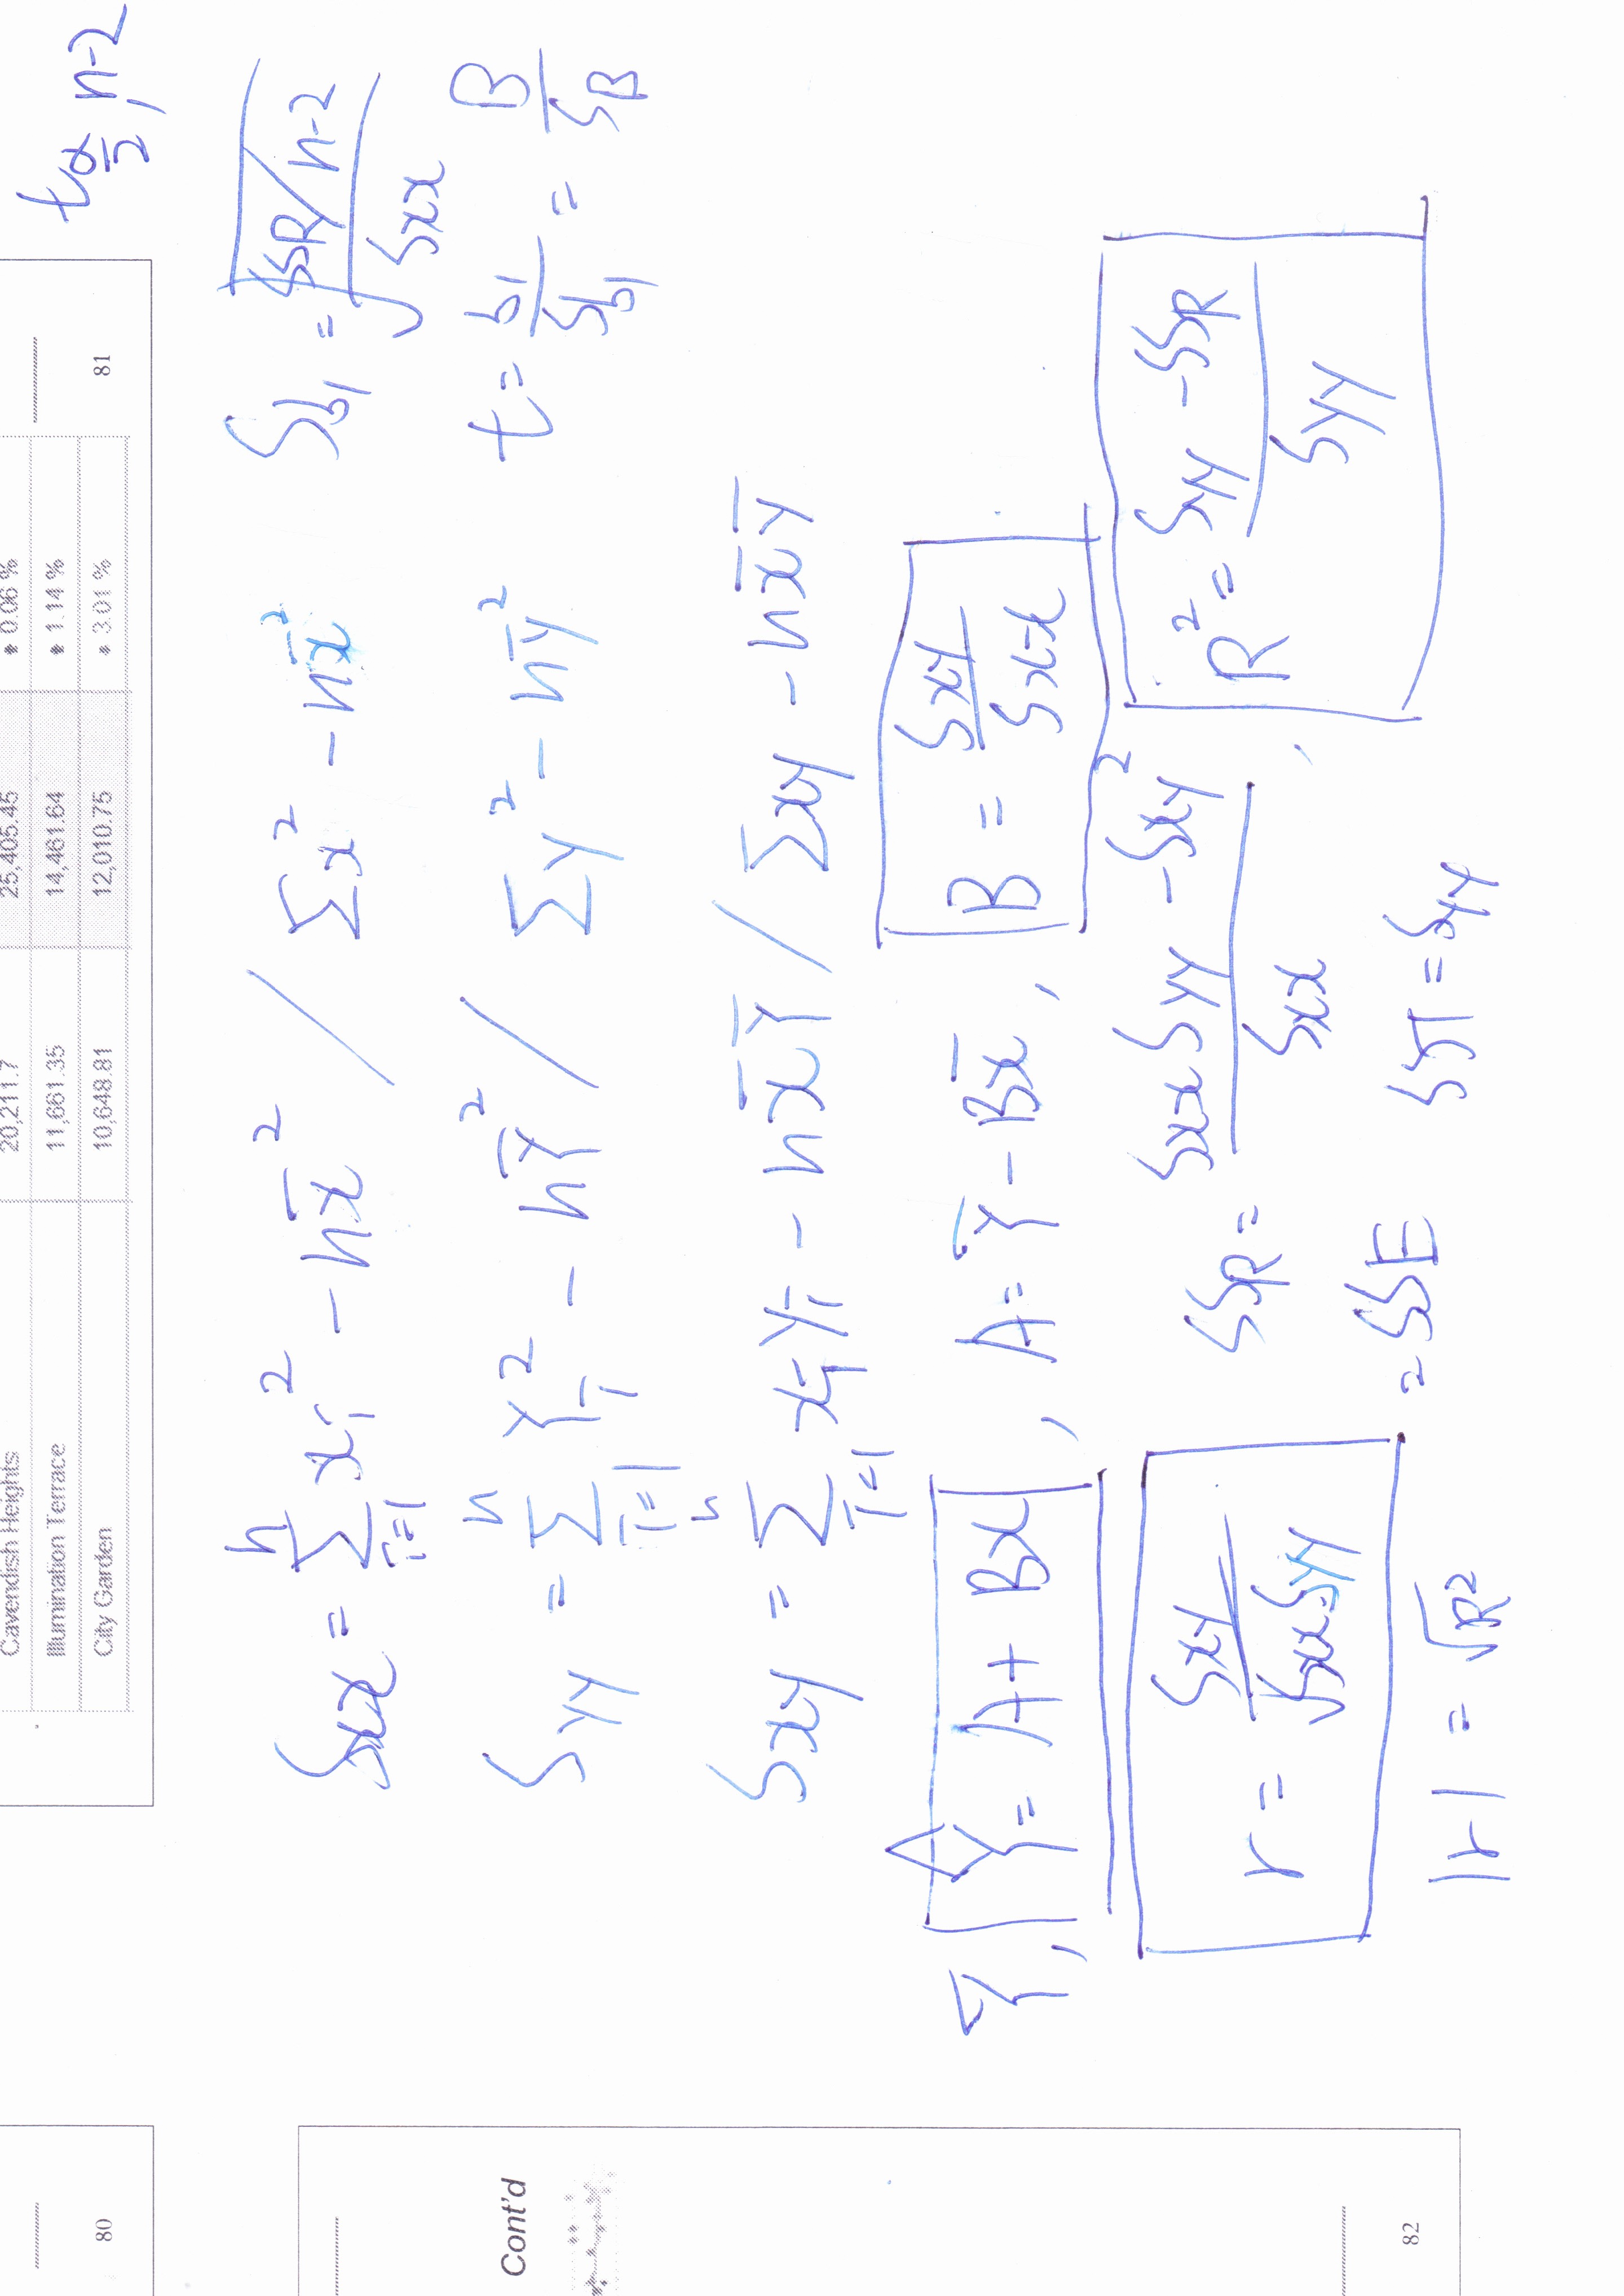 Cavendish Heights 20,211.7 25,405.45 0.06 %
Illumination Terrace 11,661.35 14,461.64 1.14 %
City Garden 10,648.81 12,010.75 3.01 %
80
81
t_{α/2, n-2}
Sxx = Σ_{i=1}^{n} x_i² - nx̄² / Σx² - nx̄²
S_{b1} = √((SSR/n-2)/Sxx)
Cont'd
S_{YY} = Σ_{i=1}^{n} Y_i² - nȲ² / Σy² - nȳ²
t = b_1/S_{b1} = B/S_B
Sxy = Σ_{i=1}^{n} x_i Y_i - nx̄Ȳ / Σxy - nx̄ȳ
Ȳ, Ŷ = A + Bx, A = Ȳ - Bx̄, B = Sxy/Sxx
r = Sxy/√(Sxx Syy)
SS_R = (Sxx S_{YY} - Sxy²)/Sxx, R² = (S_{YY} - SS_R)/S_{YY}
= SSE SST = S_{YY}
82
|r| = √R²